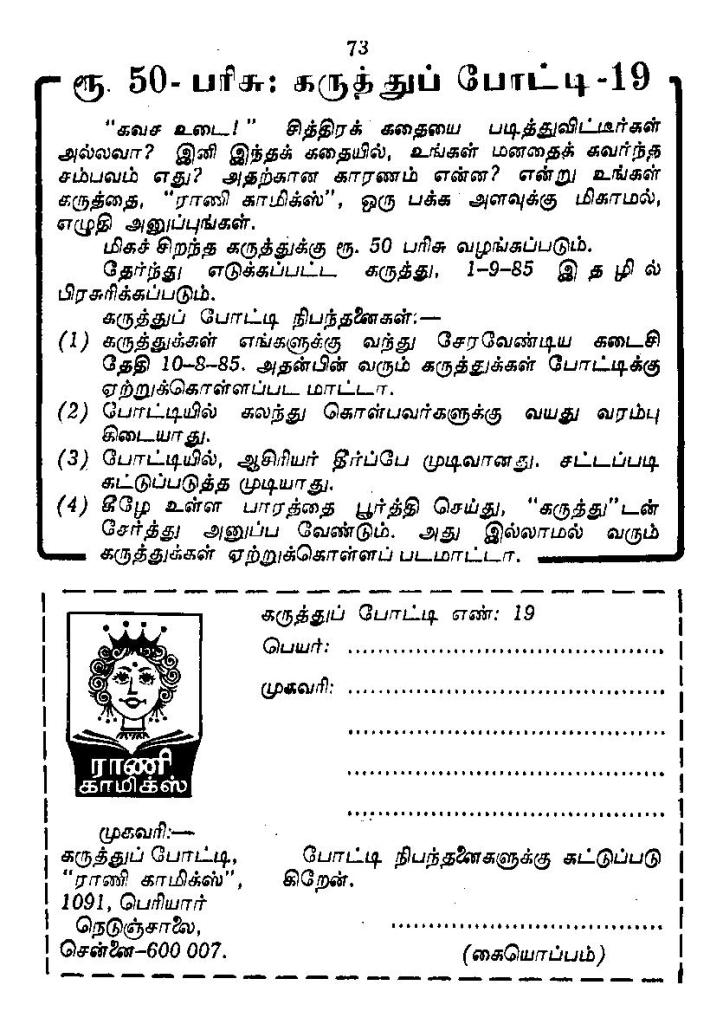 73
ரூ. 50- பரிசு: கருத்துப் போட்டி -19
"கவச உடை!" சித்திரக் கதையை படித்துவிட்டீர்கள்
அல்லவா? இனி இந்தக் கதையில், உங்கள் மனதைக் கவர்ந்த
சம்பவம் எது? அதற்கான காரணம் என்ன? என்று உங்கள்
கருத்தை, "ராணி காமிக்ஸ்", ஒரு பக்க அளவுக்கு மிகாமல்,
எழுதி அனுப்புங்கள்.
மிகச் சிறந்த கருத்துக்கு ரூ. 50 பரிசு வழங்கப்படும்.
தேர்ந்து எடுக்கப்பட்ட கருத்து, 1-9-85 இதழில்
பிரசுரிக்கப்படும்.
கருத்துப் போட்டி நிபந்தனைகள்:—
(1) கருத்துக்கள் எங்களுக்கு வந்து சேரவேண்டிய கடைசி
தேதி 10-8-85. அதன்பின் வரும் கருத்துக்கள் போட்டிக்கு
ஏற்றுக்கொள்ளப்பட மாட்டா.
(2) போட்டியில் கலந்து கொள்பவர்களுக்கு வயது வரம்பு
கிடையாது.
(3) போட்டியில், ஆசிரியர் தீர்ப்பே முடிவானது. சட்டப்படி
கட்டுப்படுத்த முடியாது.
(4) கீழே உள்ள பாரத்தை பூர்த்தி செய்து, "கருத்து"டன்
சேர்த்து அனுப்ப வேண்டும். அது இல்லாமல் வரும்
கருத்துக்கள் ஏற்றுக்கொள்ளப் படமாட்டா.
கருத்துப் போட்டி எண்: 19
பெயர்: ..........................................
முகவரி: ..........................................
..........................................
..........................................
..........................................
ராணி
காமிக்ஸ்
முகவரி:—
கருத்துப் போட்டி,
"ராணி காமிக்ஸ்",
1091, பெரியார்
நெடுஞ்சாலை,
சென்னை–600 007.
போட்டி நிபந்தனைகளுக்கு கட்டுப்படு
கிறேன்.
....................................
(கையொப்பம்)